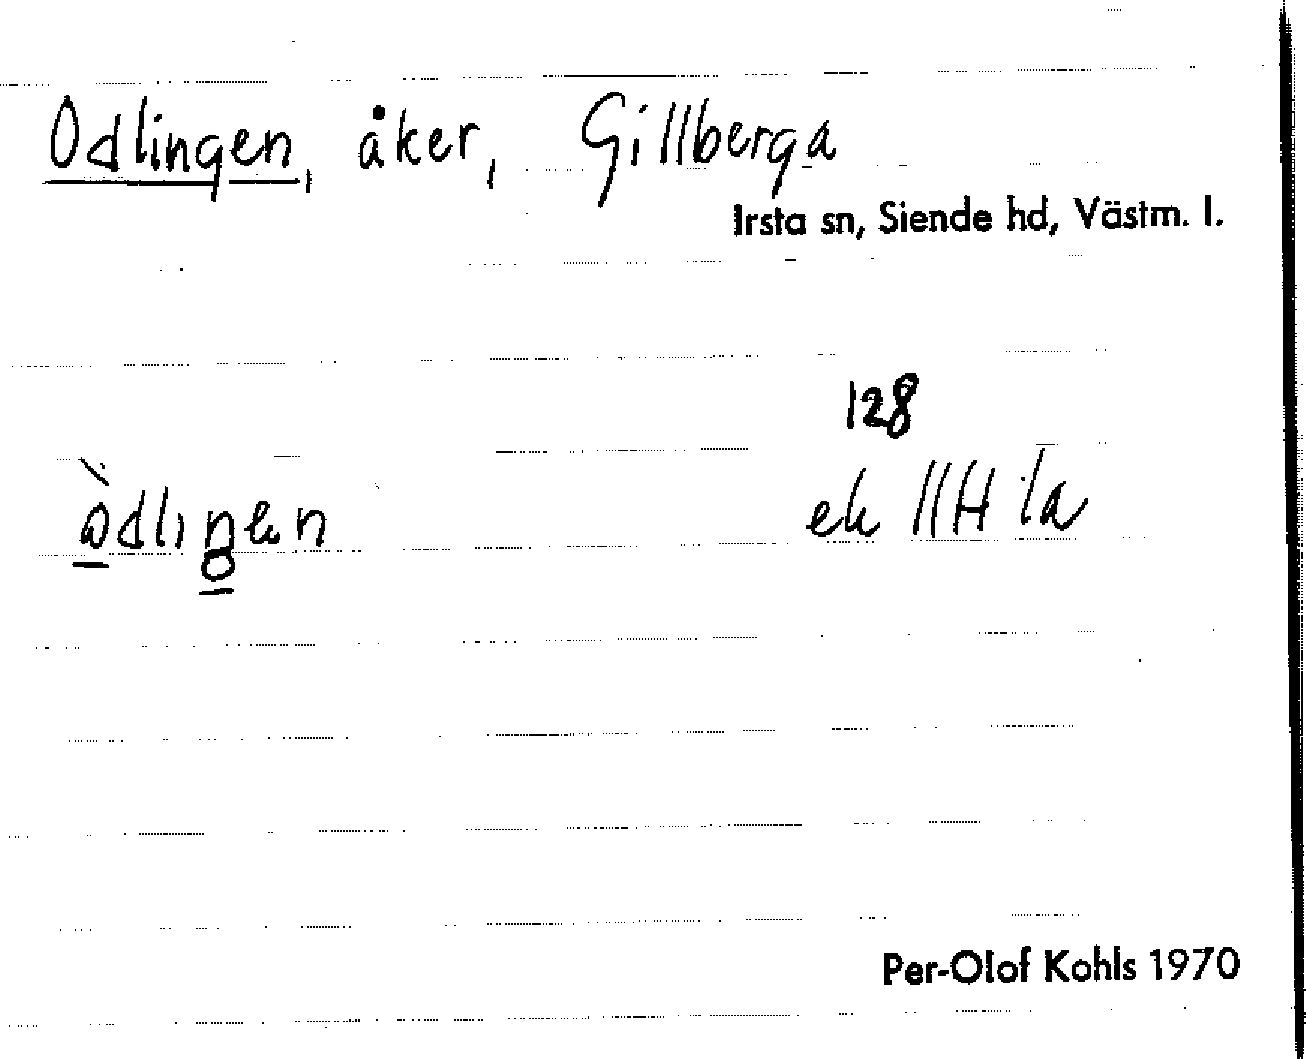 Odlingen, åker, Gillberga
Irsta sn, Siende hd, Västm. l.
128
òdlıŋen
ek IIH 1a
Per-Olof Kohls 1970